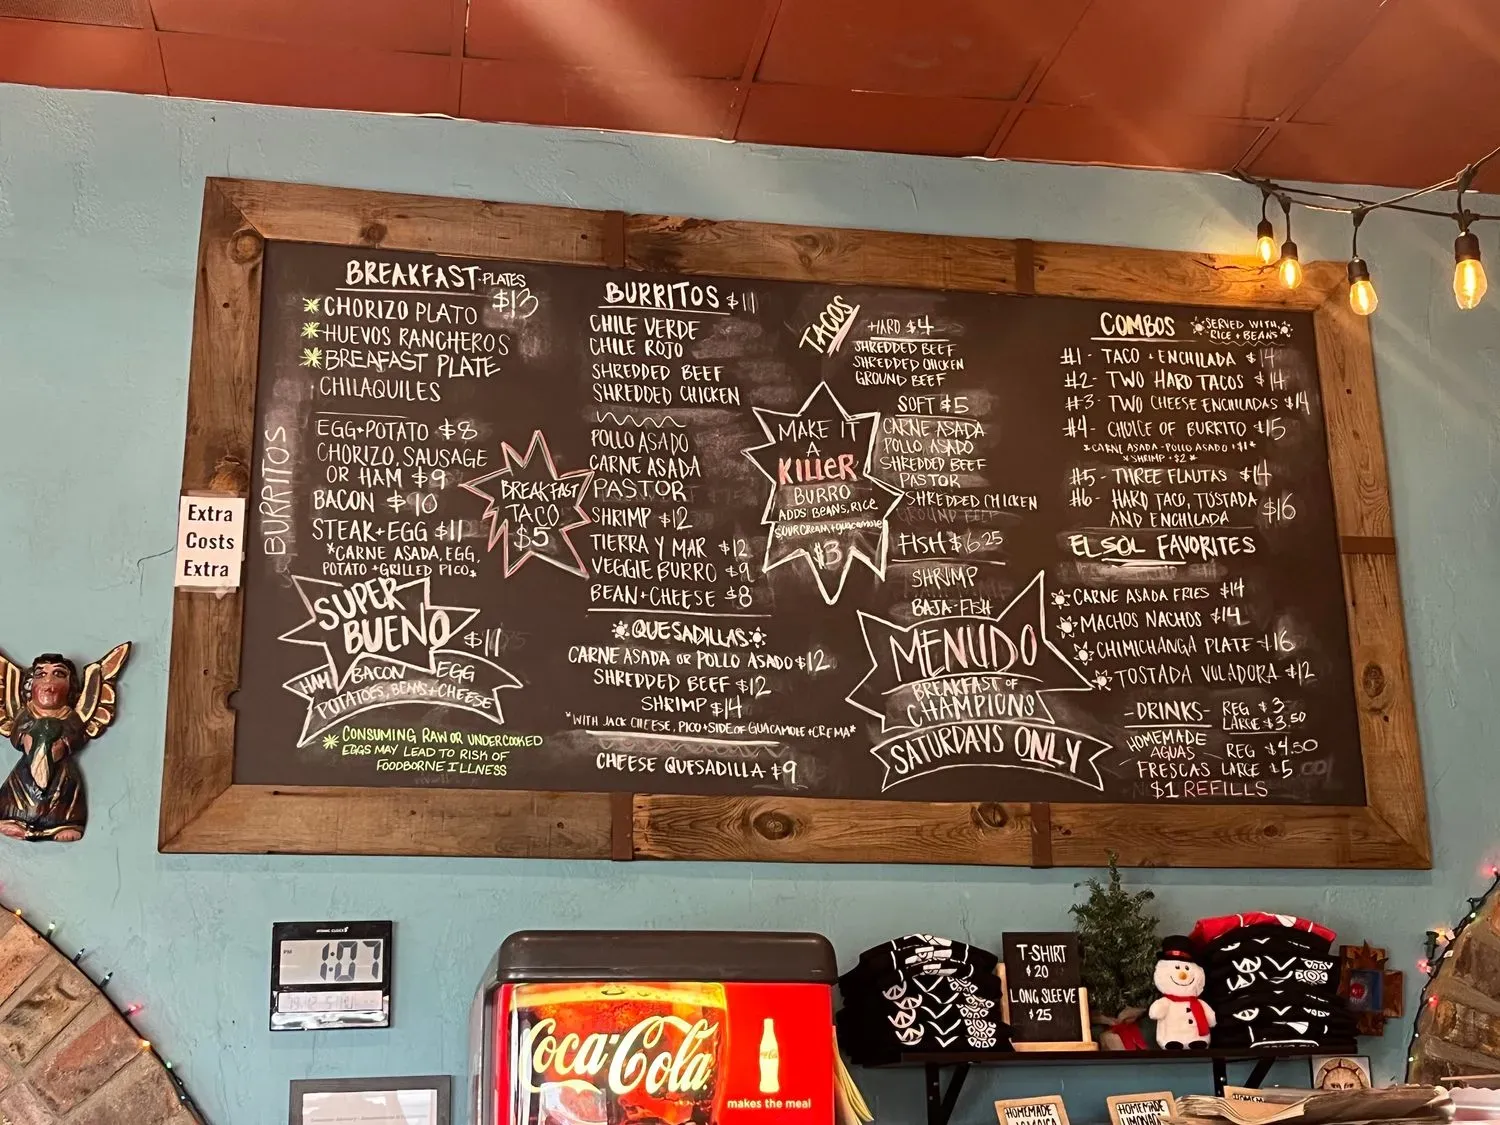 BREAKFAST-PLATES
$13
CHORIZO PLATO
HUEVOS RANCHEROS
BREAFAST PLATE
CHILAQUILES
BURRITOS
EGG+POTATO $8
CHORIZO, SAUSAGE
OR HAM $9
BACON $10
STEAK+EGG $11
*CARNE ASADA, EGG,
POTATO +GRILLED PICO*
BREAKFAST
TACO
$5
SUPER
BUENO
$11
HAM BACON EGG
POTATOES, BEANS+CHEESE
* CONSUMING RAW OR UNDERCOOKED
EGGS MAY LEAD TO RISK OF
FOODBORNE ILLNESS
BURRITOS $11
CHILE VERDE
CHILE ROJO
SHREDDED BEEF
SHREDDED CHICKEN
POLLO ASADO
CARNE ASADA
PASTOR
SHRIMP $12
TIERRA Y MAR $12
VEGGIE BURRO $9
BEAN+CHEESE $8
QUESADILLAS
CARNE ASADA OR POLLO ASADO $12
SHREDDED BEEF $12
SHRIMP $14
*WITH JACK CHEESE, PICO+SIDE OF GUACAMOLE+CREMA*
CHEESE QUESADILLA $9
TACOS
HARD $4
SHREDDED BEEF
SHREDDED CHICKEN
GROUND BEEF
SOFT $5
CARNE ASADA
POLLO ASADO
SHREDDED BEEF
PASTOR
SHREDDED CHICKEN
GROUND BEEF
FISH $6.25
SHRIMP
BAJA-FISH
MAKE IT
A
KILLER
BURRO
ADDS BEANS, RICE
SOUR CREAM+guacamole
$3
MENUDO
BREAKFAST OF
CHAMPIONS
SATURDAYS ONLY
COMBOS
SERVED WITH
RICE + BEANS
#1- TACO + ENCHILADA $14
#2- TWO HARD TACOS $14
#3- TWO CHEESE ENCHILADAS $14
#4- CHOICE OF BURRITO $15
*CARNE ASADA-POLLO ASADO +$1*
*SHRIMP +$2*
#5- THREE FLAUTAS $14
#6- HARD TACO, TOSTADA
AND ENCHILADA $16
EL SOL FAVORITES
CARNE ASADA FRIES $14
MACHOS NACHOS $14
CHIMICHANGA PLATE $16
TOSTADA VOLADORA $12
-DRINKS- REG $3
LARGE $3.50
HOMEMADE
AGUAS
FRESCAS
REG $4.50
LARGE $5
$1 REFILLS
Extra
Costs
Extra
PM
ATOMIC CLOCK
1:07
Coca-Cola
makes the meal
T-SHIRT
$20
LONG SLEEVE
$25
HOMEMADE
JAMAICA
HOMEMADE
LIMONADA